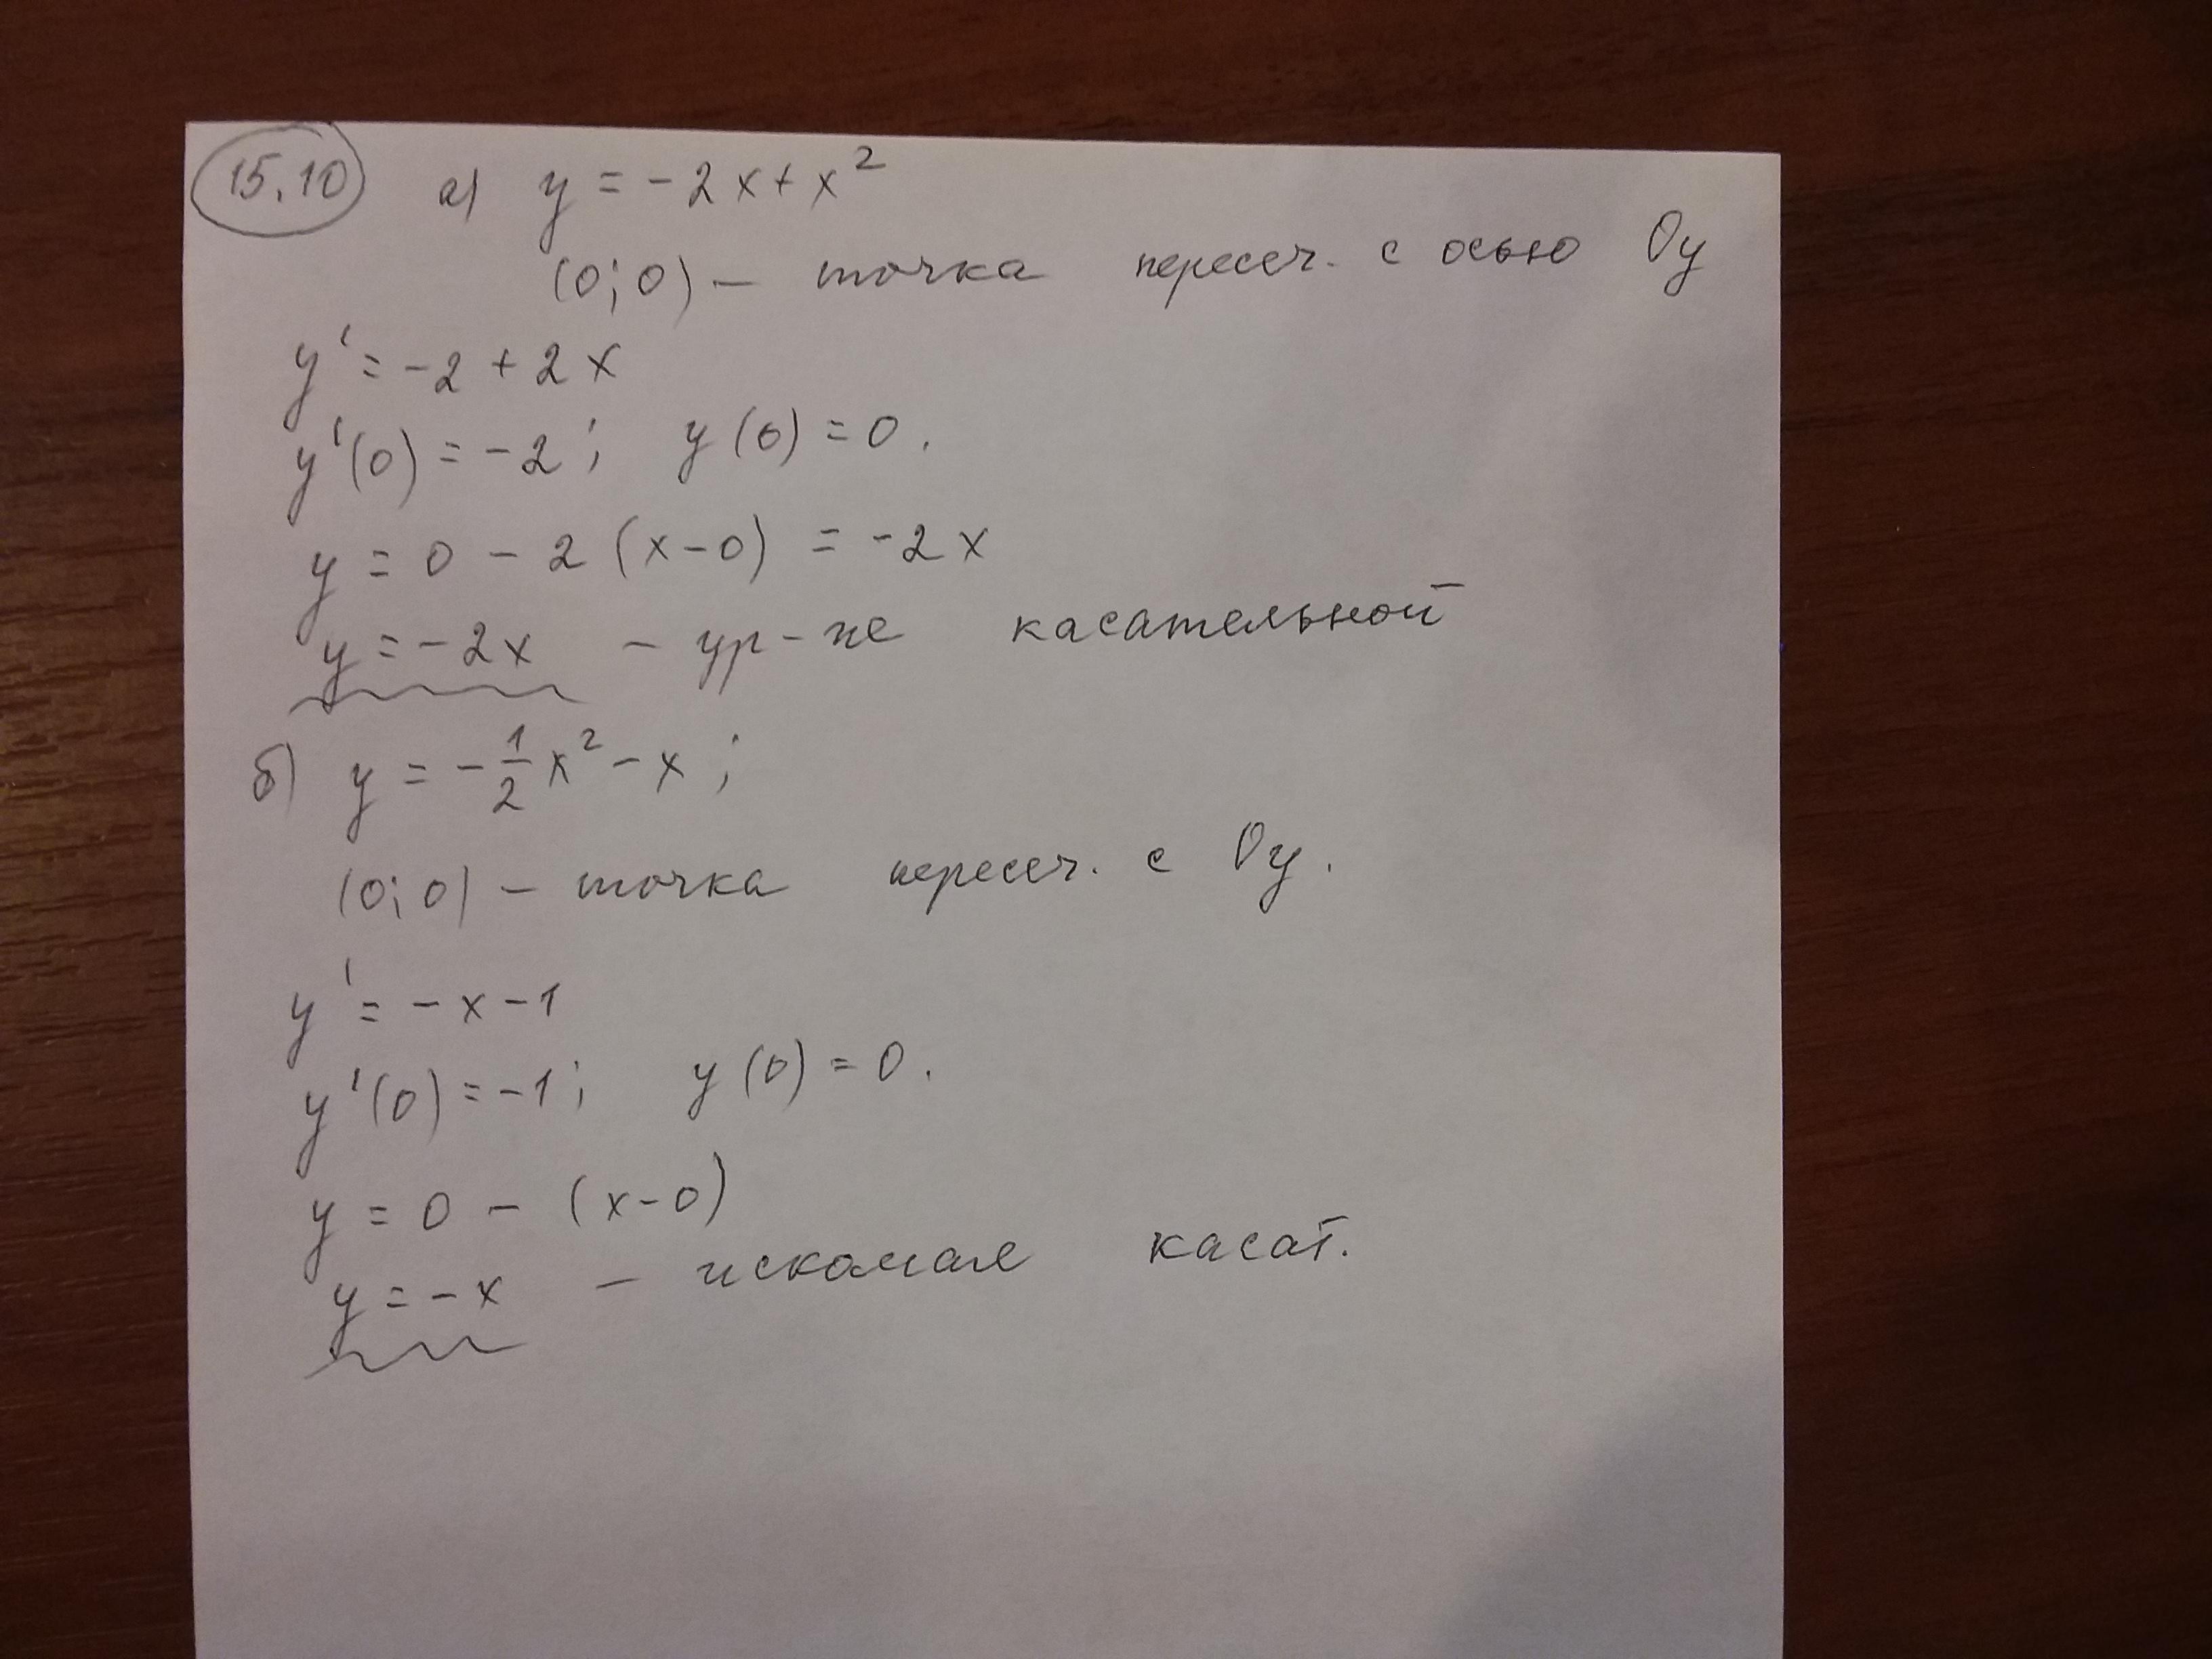 15.10 а) y = -2x + x²
(0; 0) – точка пересеч. с осью Oy
y' = -2 + 2x
y'(0) = -2; y(0) = 0.
y = 0 - 2 (x-0) = -2x
y = -2x – ур-не касательной
б) y = -1/2 x² - x ;
(0; 0) – точка пересеч. с Oy.
y' = -x - 1
y'(0) = -1; y(0) = 0.
y = 0 - (x-0)
y = -x – искомая касат.